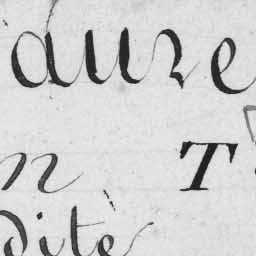 auze
n T
dite